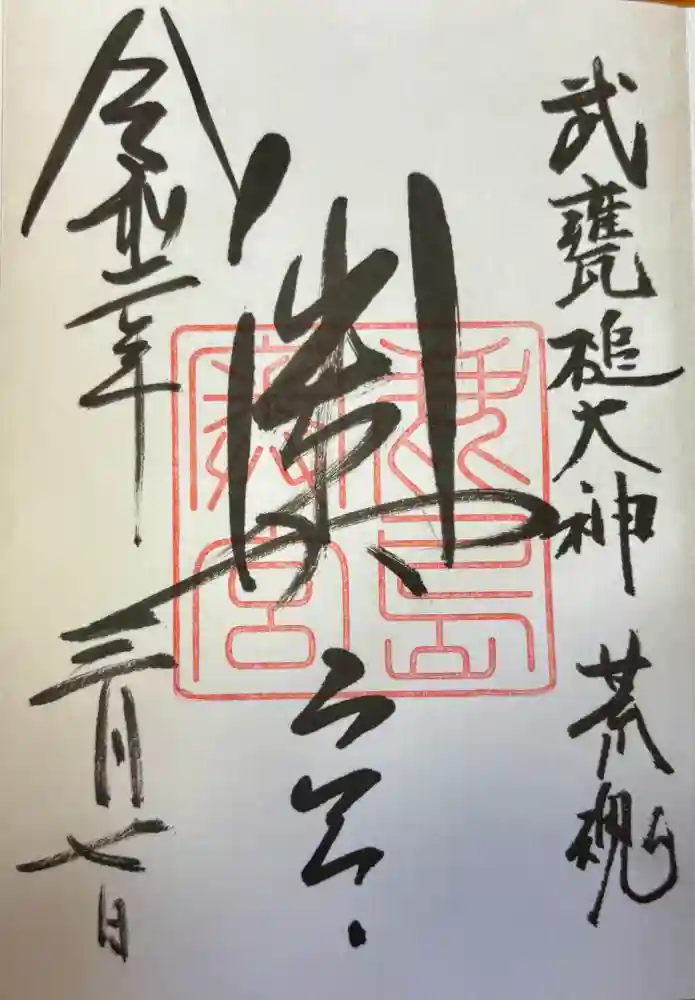 武甕槌大神 荒魂
奥宮
令和二年三月七日